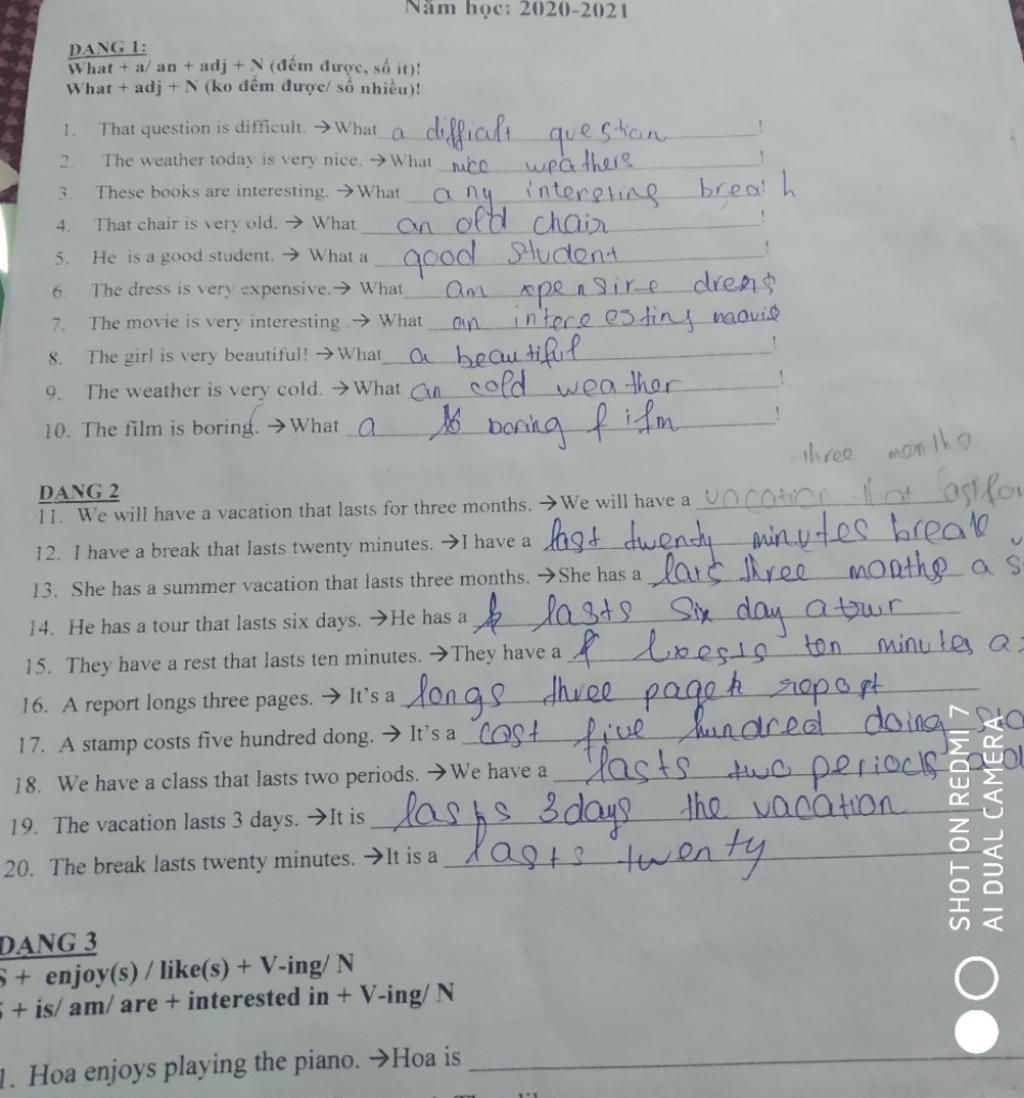 Năm học: 2020-2021
DẠNG 1:
What + a/ an + adj + N (đếm được, số ít)!
What + adj + N (ko đếm được/ số nhiều)!
1. That question is difficult. →What a difficult question !
2. The weather today is very nice. →What nice weathers !
3. These books are interesting. →What any intersting
4. That chair is very old. → What an old chair !
5. He is a good student. → What a good student !
6. The dress is very expensive.→ What an dress
7. The movie is very interesting .→ What an movie
8. The girl is very beautiful! →What a beautiful !
9. The weather is very cold. →What an cold weather !
10. The film is boring. →What a boring film !
three months
DẠNG 2
11. We will have a vacation that lasts for three months. →We will have a vacation
12. I have a break that lasts twenty minutes. →I have a last twenty minutes break
13. She has a summer vacation that lasts three months. →She has a three months a
14. He has a tour that lasts six days. →He has a lasts six day a tour
15. They have a rest that lasts ten minutes. →They have a ten minutes a
16. A report longs three pages. → It's a longs three page report
17. A stamp costs five hundred dong. → It's a cost five hundred doing
18. We have a class that lasts two periods. →We have a lasts two periods
19. The vacation lasts 3 days. →It is lasts 3 days the vacation
20. The break lasts twenty minutes. →It is a lasts twenty
DẠNG 3
S + enjoy(s) / like(s) + V-ing/ N
+ is/ am/ are + interested in + V-ing/ N
1. Hoa enjoys playing the piano. →Hoa is
SHOT ON REDMI 7
AI DUAL CAMERA